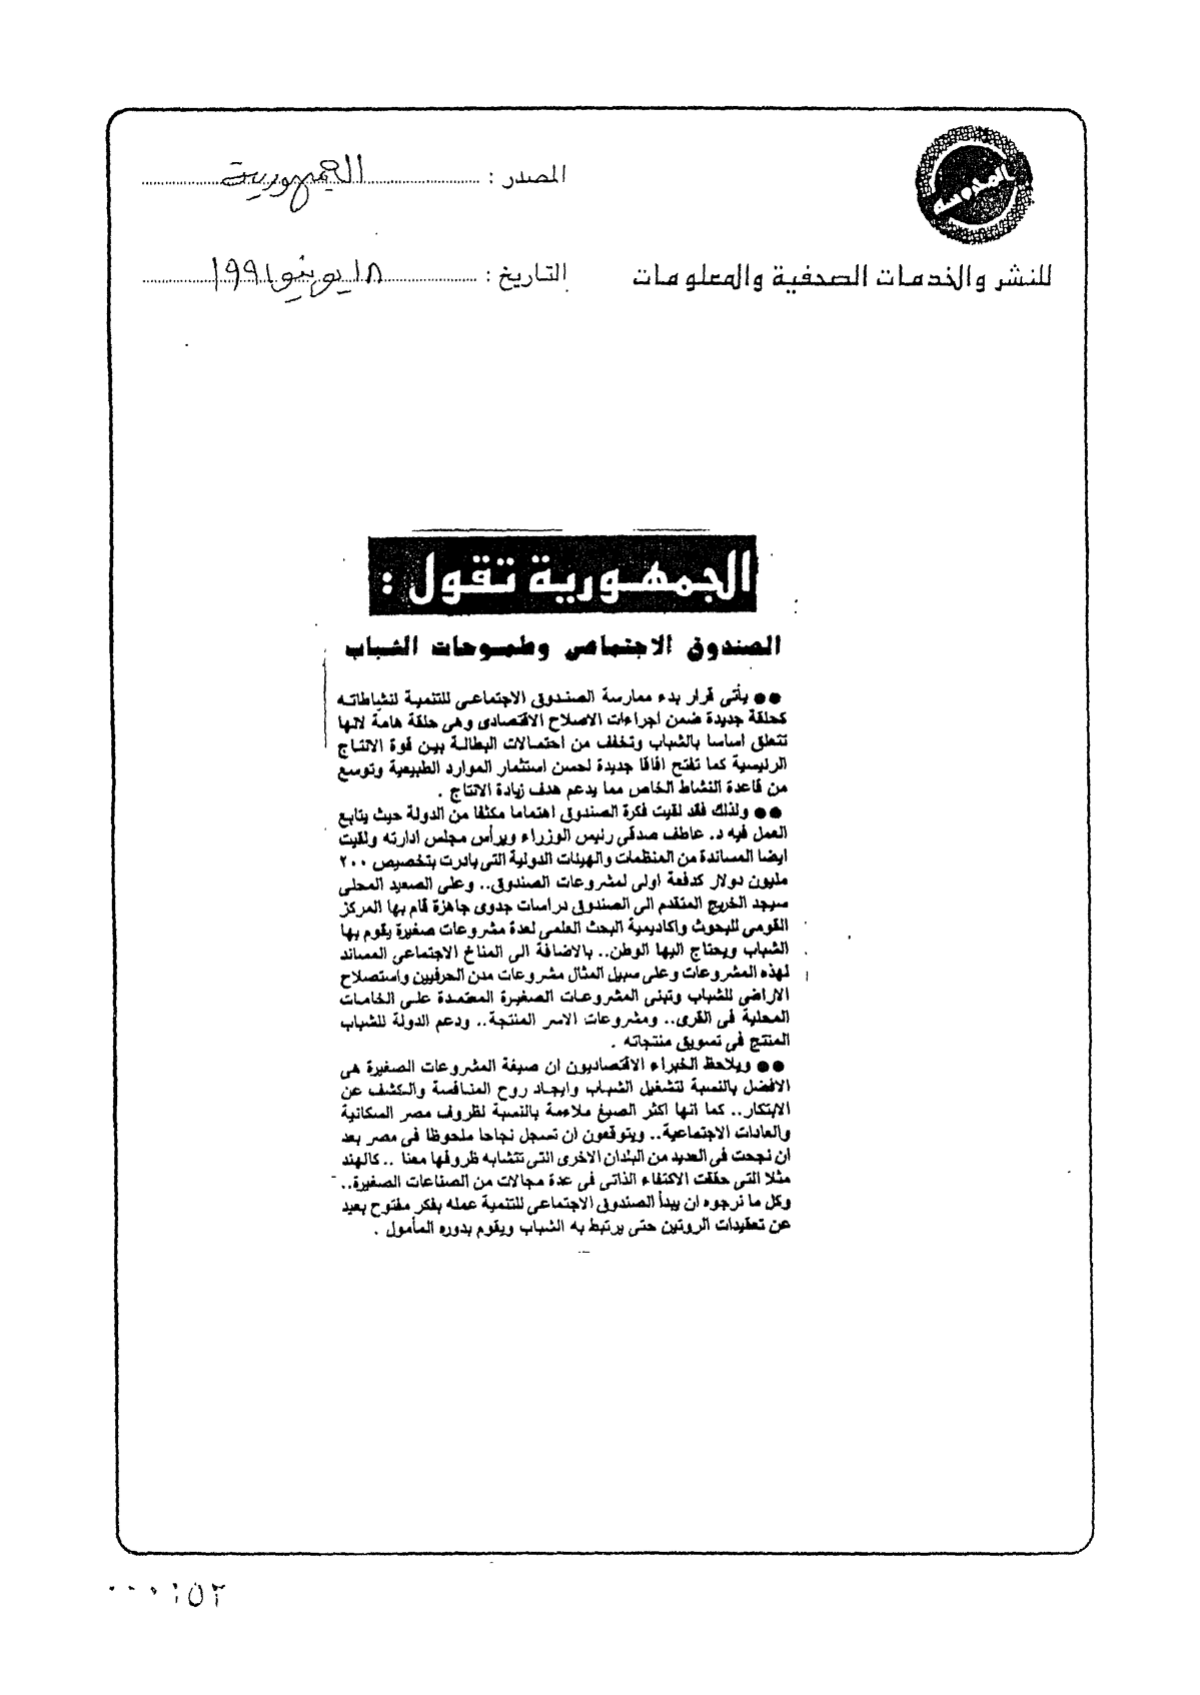 المصدر : الجمهورية
للنشر والخدمات الصحفية والمعلومات
التاريخ : ١٨ يونيو ١٩٩١
الجمهورية تقول :
الصندوق الاجتماعى وطموحات الشباب
●● يأتى قرار بدء ممارسة الصندوق الاجتماعى للتنمية لنشاطاته
كحلقة جديدة ضمن اجراءات الاصلاح الاقتصادى وهى حلقة هامة لانها
تتعلق اساسا بالشباب وتخفف من احتمالات البطالة بين قوة الانتاج
الرئيسية كما تفتح افاقا جديدة لحسن استثمار الموارد الطبيعية وتوسع
من قاعدة النشاط الخاص مما يدعم هدف زيادة الانتاج .
●● ولذلك فقد لقيت فكرة الصندوق اهتماما مكثفا من الدولة حيث يتابع
العمل فيه د. عاطف صدقى رئيس الوزراء ويرأس مجلس ادارته ولقيت
ايضا المساندة من المنظمات والهيئات الدولية التى بادرت بتخصيص ٢٠٠
مليون دولار كدفعة اولى لمشروعات الصندوق.. وعلى الصعيد المحلى
سيجد الخريج المتقدم الى الصندوق دراسات جدوى جاهزة قام بها المركز
القومى للبحوث واكاديمية البحث العلمى لعدة مشروعات صغيرة يقوم بها
الشباب ويحتاج اليها الوطن.. بالاضافة الى المناخ الاجتماعى المساند
لهذه المشروعات وعلى سبيل المثال مشروعات مدن الحرفيين واستصلاح
الاراضى للشباب وتبنى المشروعات الصغيرة المعتمدة على الخامات
المحلية فى القرى.. ومشروعات الاسر المنتجة.. ودعم الدولة للشباب
المنتج فى تسويق منتجاته .
●● ويلاحظ الخبراء الاقتصاديون ان صيغة المشروعات الصغيرة هى
الافضل بالنسبة لتشغيل الشباب وايجاد روح المنافسة والكشف عن
الابتكار.. كما انها اكثر الصيغ ملاءمة بالنسبة لظروف مصر السكانية
والعادات الاجتماعية.. ويتوقعون ان تسجل نجاحا ملحوظا فى مصر بعد
ان نجحت فى العديد من البلدان الاخرى التى تتشابه ظروفها معنا .. كالهند
مثلا التى حققت الاكتفاء الذاتى فى عدة مجالات من الصناعات الصغيرة..
وكل ما نرجوه ان يبدأ الصندوق الاجتماعى للتنمية عمله بفكر مفتوح بعيد
عن تعقيدات الروتين حتى يرتبط به الشباب ويقوم بدوره المأمول .